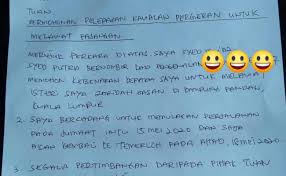 TUAN,
PERMOHONAN PELEPASAN KAWALAN PERGERAKAN UNTUK
MELAWAT PASANGAN
MERUJUK PERKARA DI ATAS, SAYA SYED
SYED PUTRA BERNOMBOR KAD PENGENALAN
MEMOHON KEBENARAN DARIPADA SAYA UNTUK MELAWAT
ISTERI SAYA ZARIDAH HASAN DI PANDAN,
KUALA LUMPUR
2. SAYA BERCADANG UNTUK MEMULAKAN PERJALANAN
PADA JUMAAT IAITU 15 MEI 2020 DAN SAYA
AKAN KEMBALI KE TEMERLOH PADA AHAD, 2020
3. SEGALA PERTIMBANGAN DARIPADA PIHAK TUAN